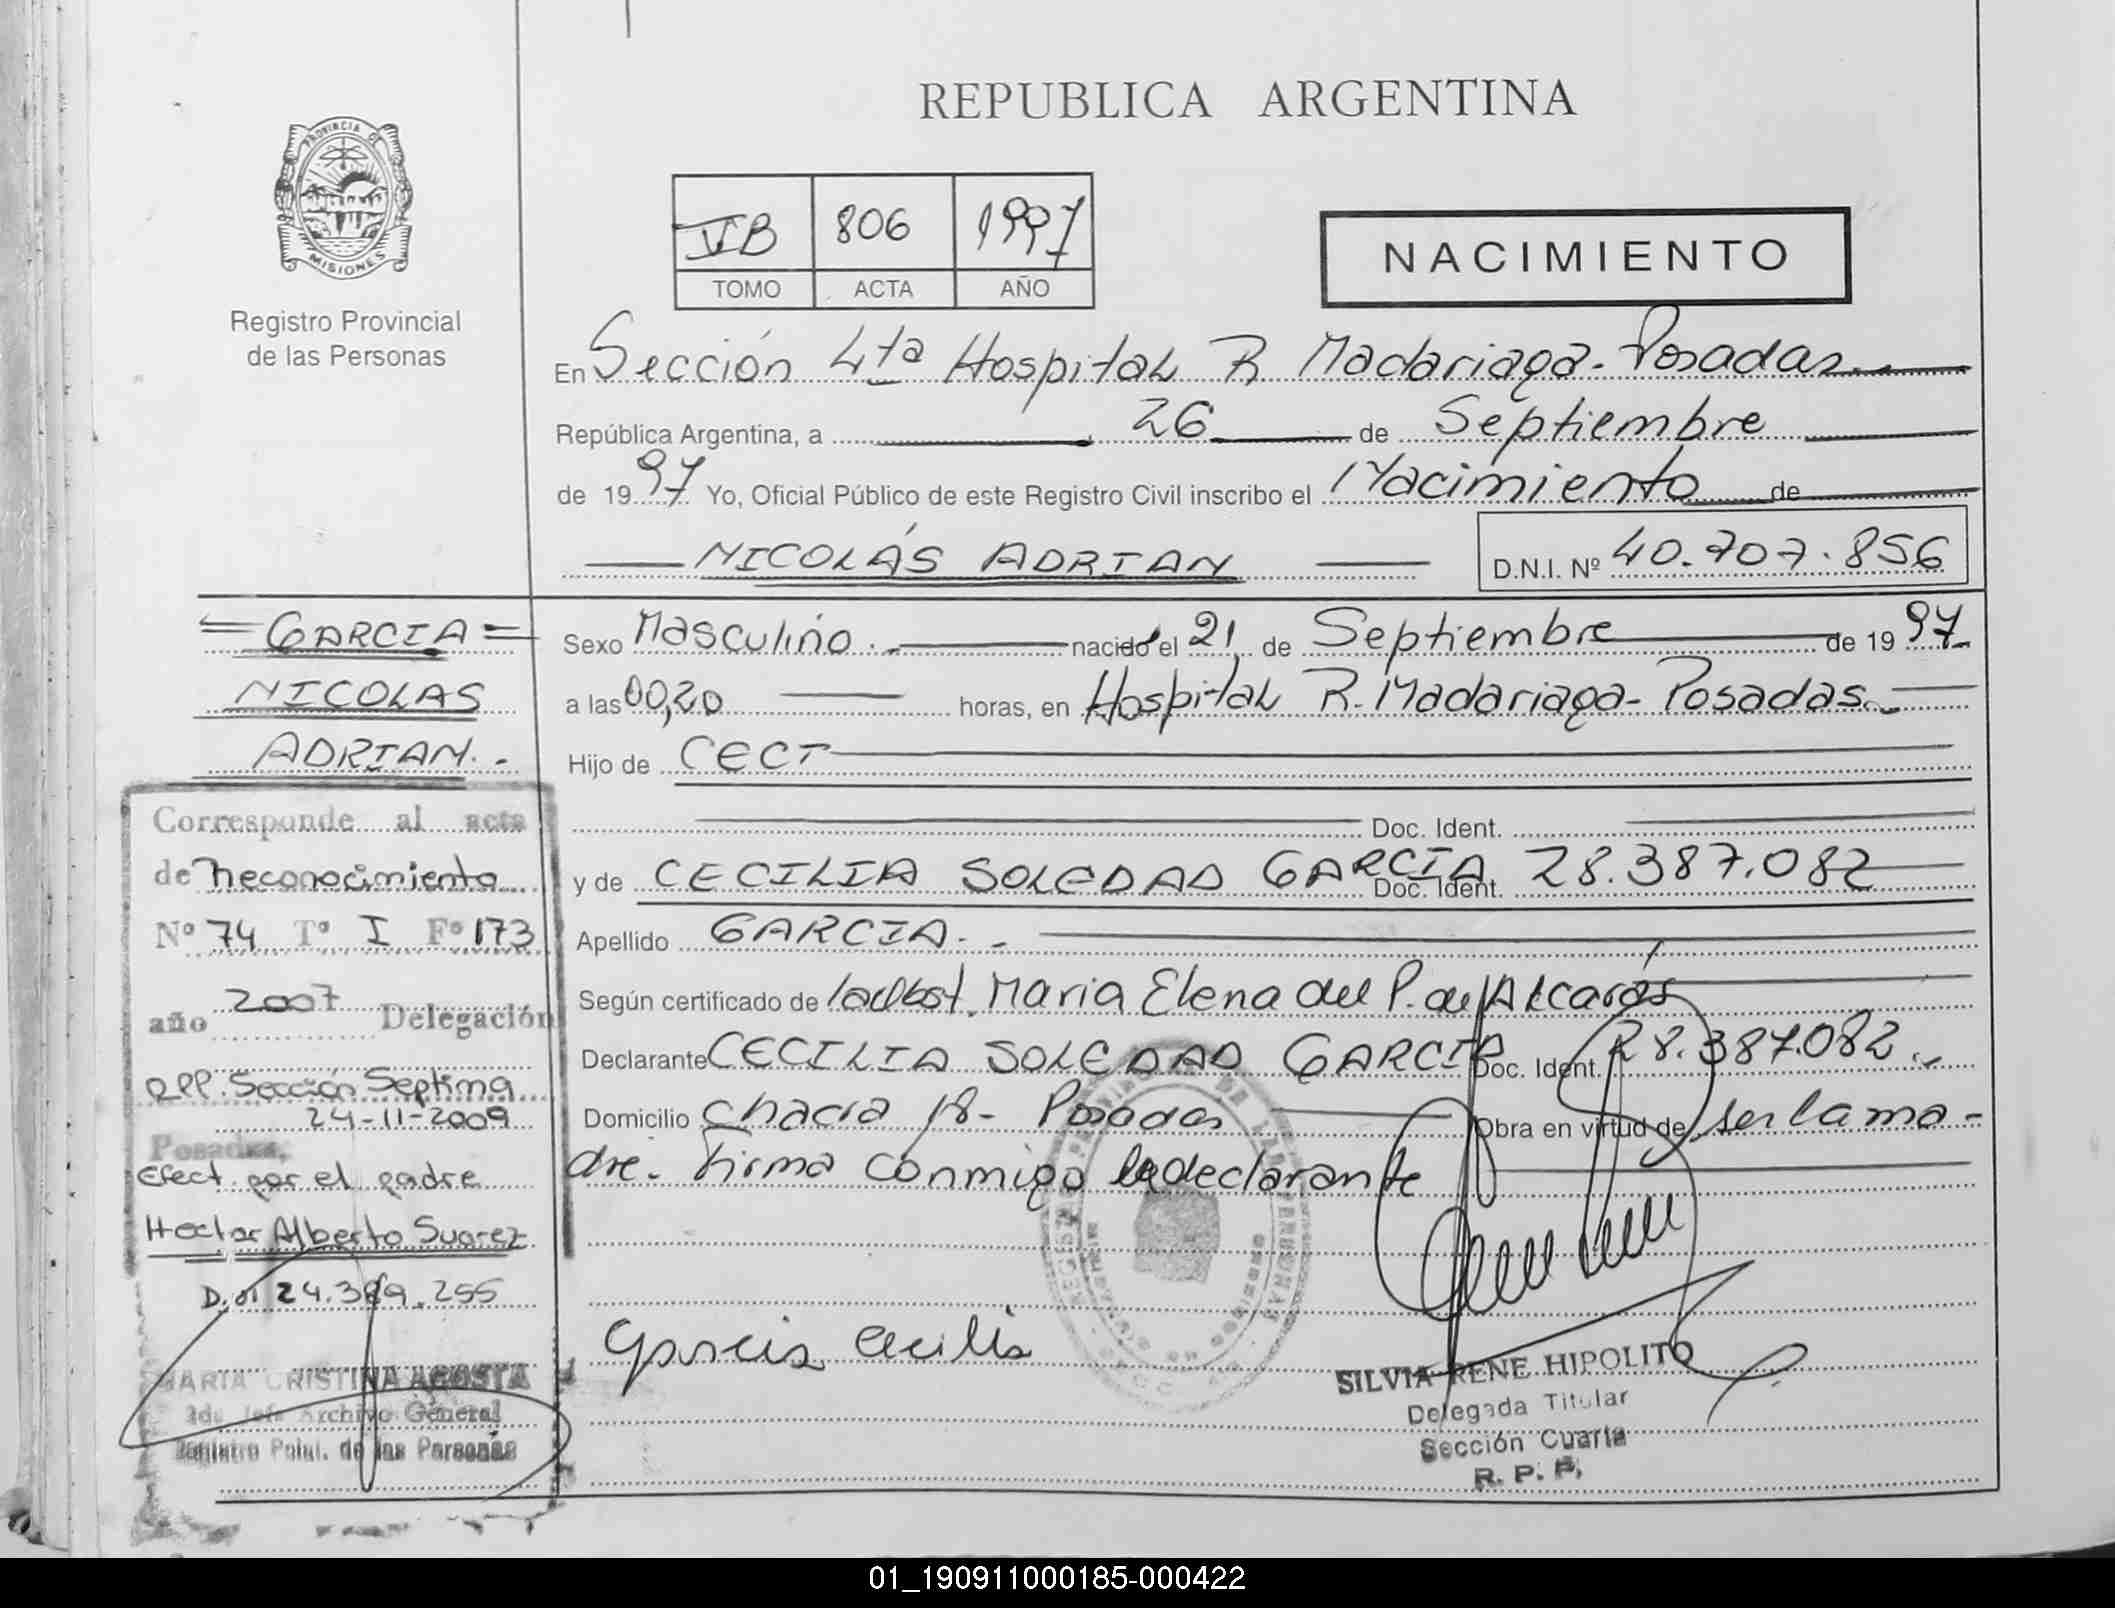 REPUBLICA ARGENTINA
PROVINCIA DE
MISIONES
Registro Provincial
de las Personas
VB 806 1997
TOMO ACTA AÑO
NACIMIENTO
En Sección 4ta Hospital R Madariaga - Posadas.
República Argentina, a 26 de Septiembre
de 1997 Yo, Oficial Público de este Registro Civil inscribo el Nacimiento de
NICOLÁS ADRIAN D.N.I. Nº 40.707.856
GARCIA
NICOLAS
ADRIAN.-
Sexo Masculino.- nacido el 21 de Septiembre de 1997.
a las 00,20 horas, en Hospital R. Madariaga - Posadas.
Hijo de CECI
Doc. Ident.
y de CECILIA SOLEDAD GARCÍA Doc. Ident. 28.387.082
Apellido GARCIA.-
Según certificado de la Obst. Maria Elena del P. de Alcarás
Declarante CECILIA SOLEDAD GARCIA Doc. Ident. 28.387.082.
Domicilio Chacra 18- Posadas Obra en virtud de ser la ma-
dre. Firma conmigo la declarante
Garcia Cecilia
SILVIA RENE HIPOLITO
Delegada Titular
Sección Cuarta
R. P. P.
Corresponde al acta
de Reconocimiento
Nº 74 Tº I Fº 173
año 2007 Delegación
RPP. Sección Septima
24-11-2009
Posadas,
Efect. por el padre
Hector Alberto Suarez
D.N.I 24.389.255
MARIA CRISTINA ACOSTA
2da Jefe Archivo General
Registro Pcial. de las Personas
01_190911000185-000422